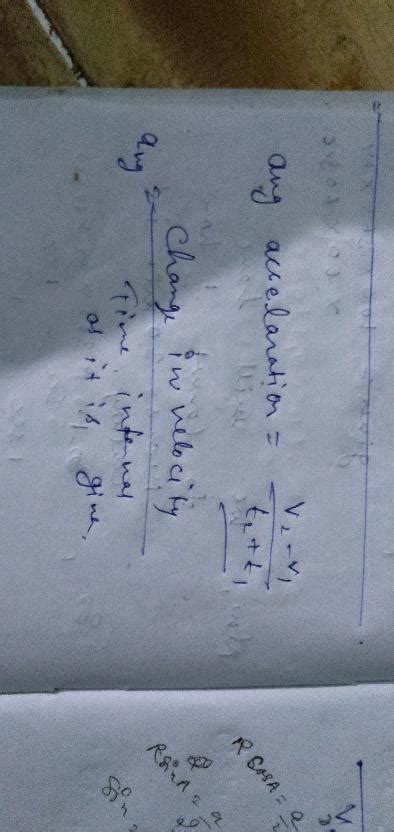 avg accelaration = V₂ - V₁
t₂ + t₁
avg = Change in velocity
Time interval
as it is give.
R CosA =
R SinA = a
Sin